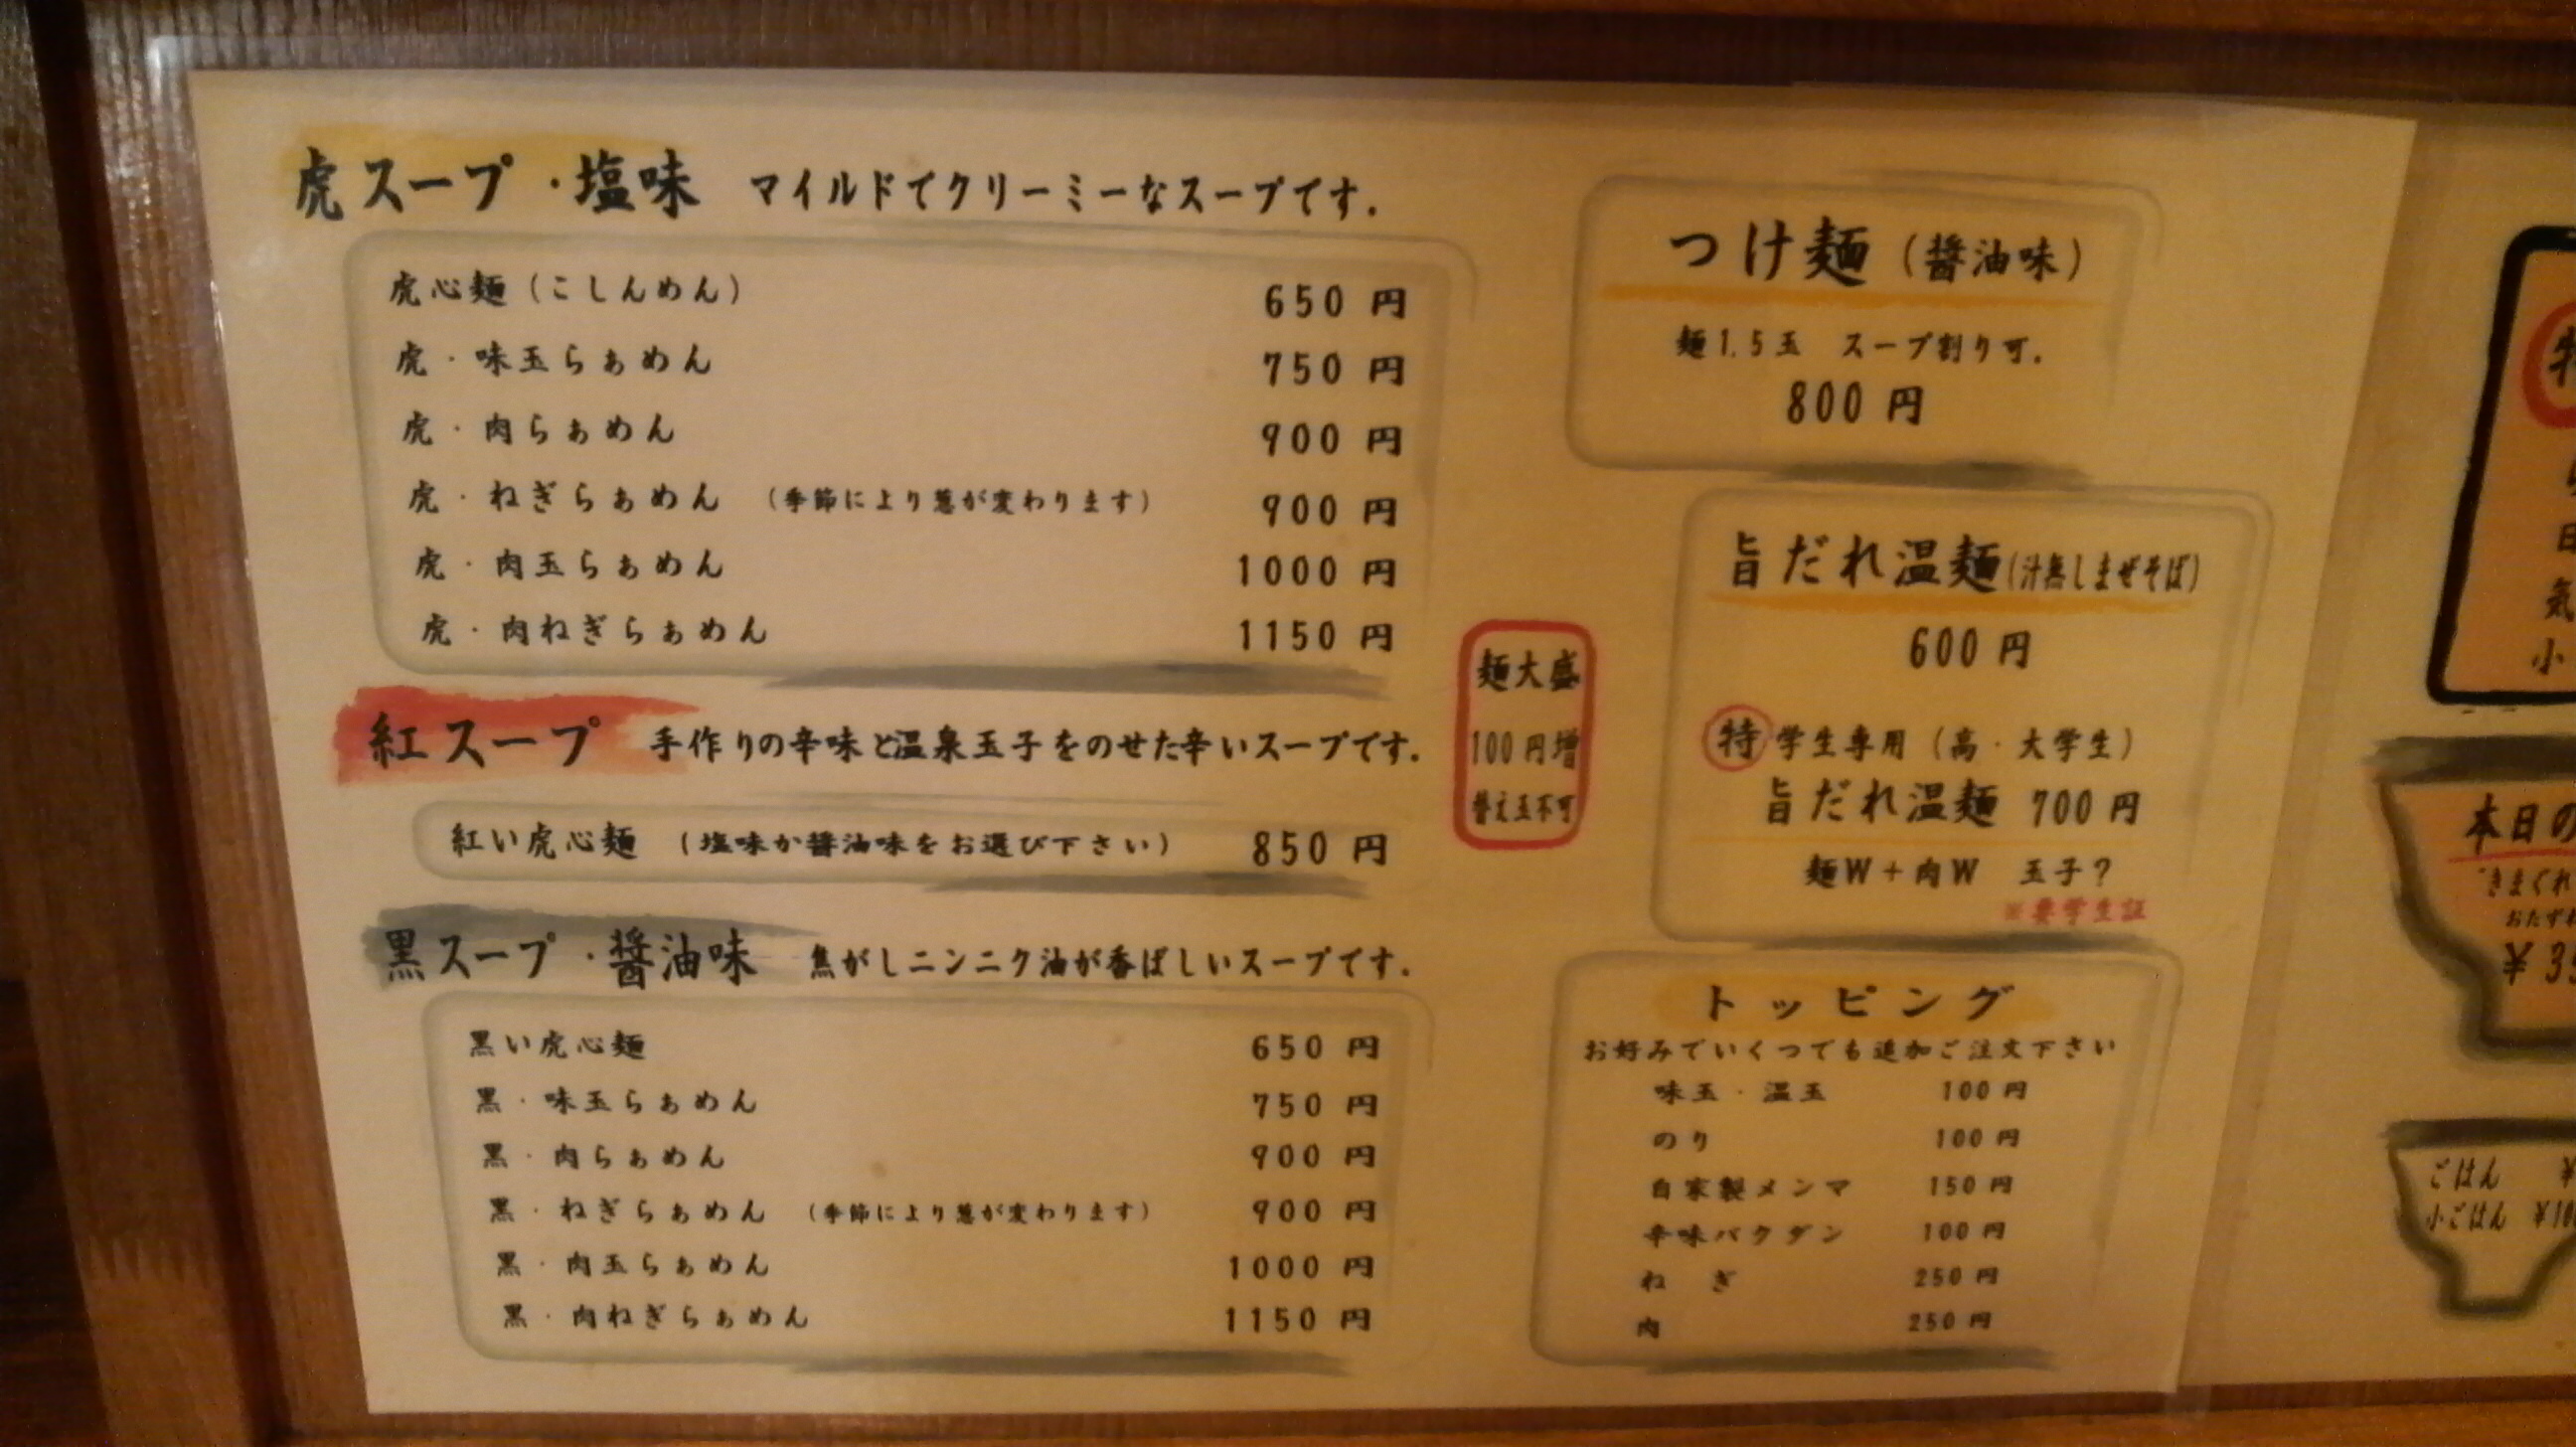 虎スープ・塩味 マイルドでクリーミーなスープです.
虎心麺(こしんめん) 650円
虎・味玉らぁめん 750円
虎・肉らぁめん 900円
虎・ねぎらぁめん (季節により葱が変わります) 900円
虎・肉玉らぁめん 1000円
虎・肉ねぎらぁめん 1150円
紅スープ 手作りの辛味と温泉玉子をのせた辛いスープです.
紅い虎心麺 (塩味か醤油味をお選び下さい) 850円
黒スープ・醤油味 焦がしニンニク油が香ばしいスープです.
黒い虎心麺 650円
黒・味玉らぁめん 750円
黒・肉らぁめん 900円
黒・ねぎらぁめん (季節により葱が変わります) 900円
黒・肉玉らぁめん 1000円
黒・肉ねぎらぁめん 1150円
麺大盛
100円増
替え玉不可
つけ麺(醤油味)
麺1.5玉 スープ割り可.
800円
旨だれ温麺(汁無しまぜそば)
600円
特 学生専用(高・大学生)
旨だれ温麺 700円
麺W+肉W 玉子?
※要学生証
トッピング
お好みでいくつでも追加ご注文下さい
味玉・温玉 100円
のり 100円
自家製メンマ 150円
辛味バクダン 100円
ねぎ 250円
肉 250円
日
気
小
本日の
きまぐれ
おたずね
¥35
ごはん ¥
小ごはん ¥100